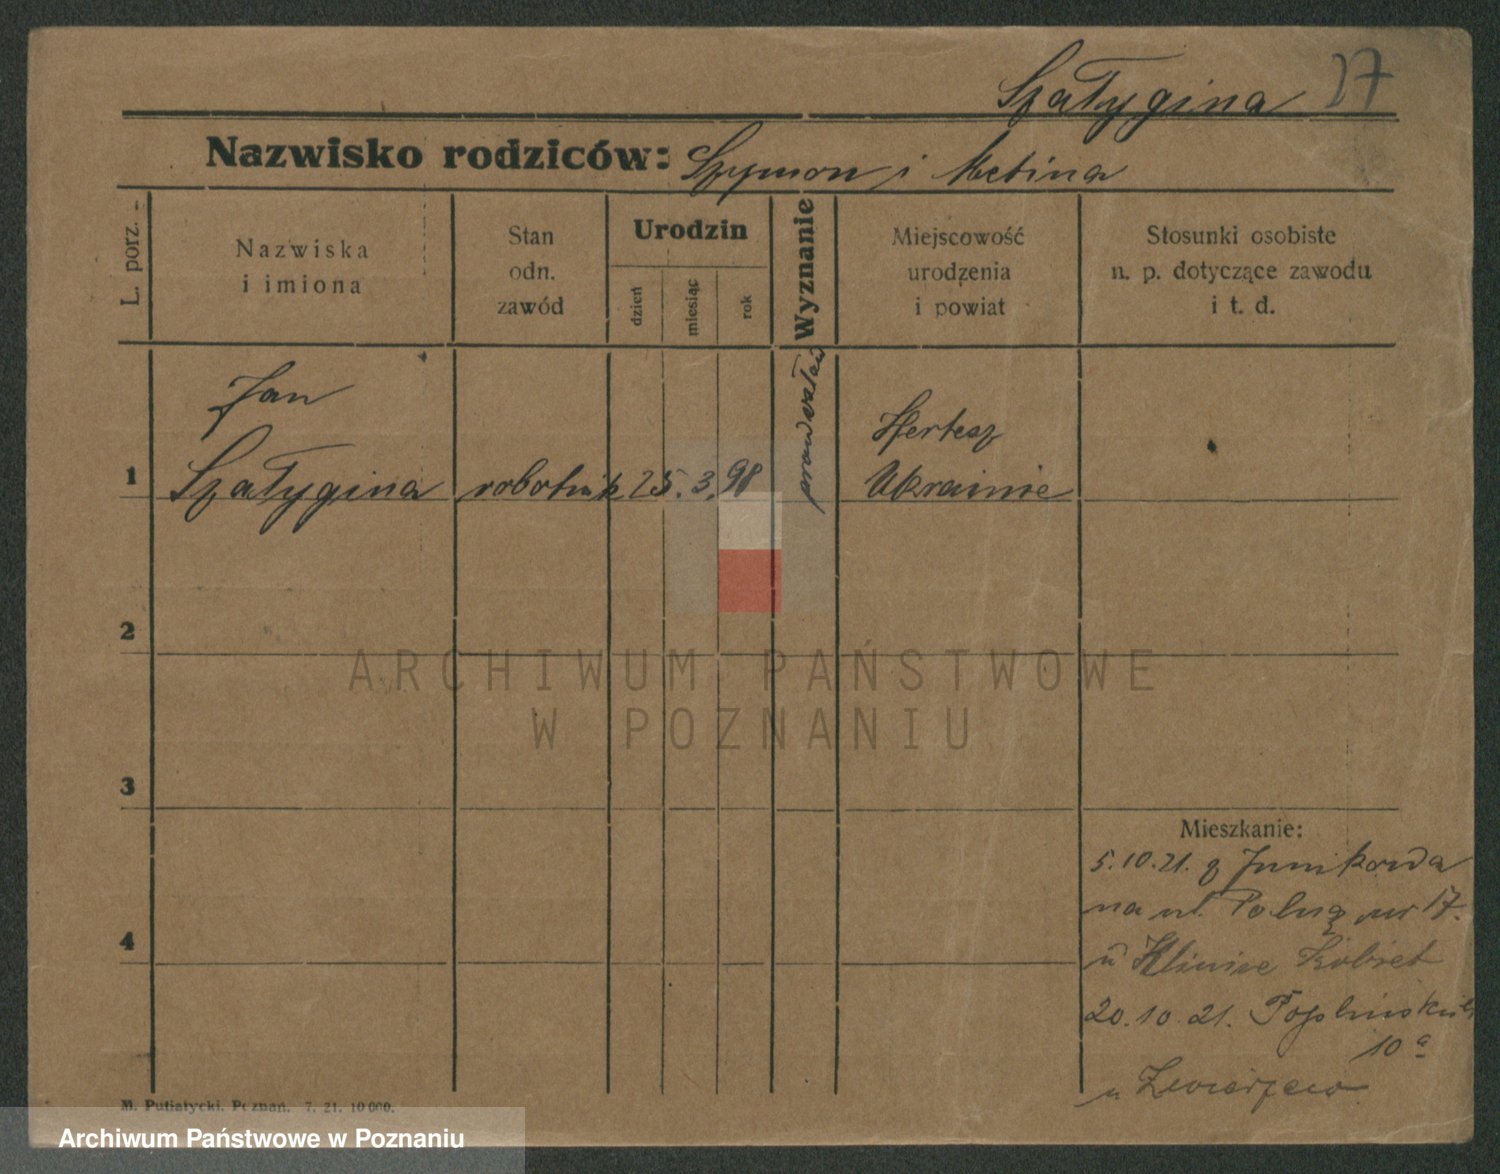 Szałygina 27
Nazwisko rodziców: Szymon i Metina
L. porz.
Nazwiska
i imiona
Stan
odn.
zawód
Urodzin
dzień
miesiąc
rok
Wyznanie
Miejscowość
urodzenia
i powiat
Stosunki osobiste
n. p. dotyczące zawodu
i t. d.
1
Jan
Szałygina
robotnik
25. 3. 98
prawosław
Hertesz
Ukrainie
2
3
4
Mieszkanie:
5.10.21. z Junikowa
na ul. Polną nr 17.
u Klinice Kobiet
20.10.21.
10a
u
M. Putiatycki. Poznań. 7. 21. 10 000.
ARCHIWUM PAŃSTWOWE
W POZNANIU
Archiwum Państwowe w Poznaniu